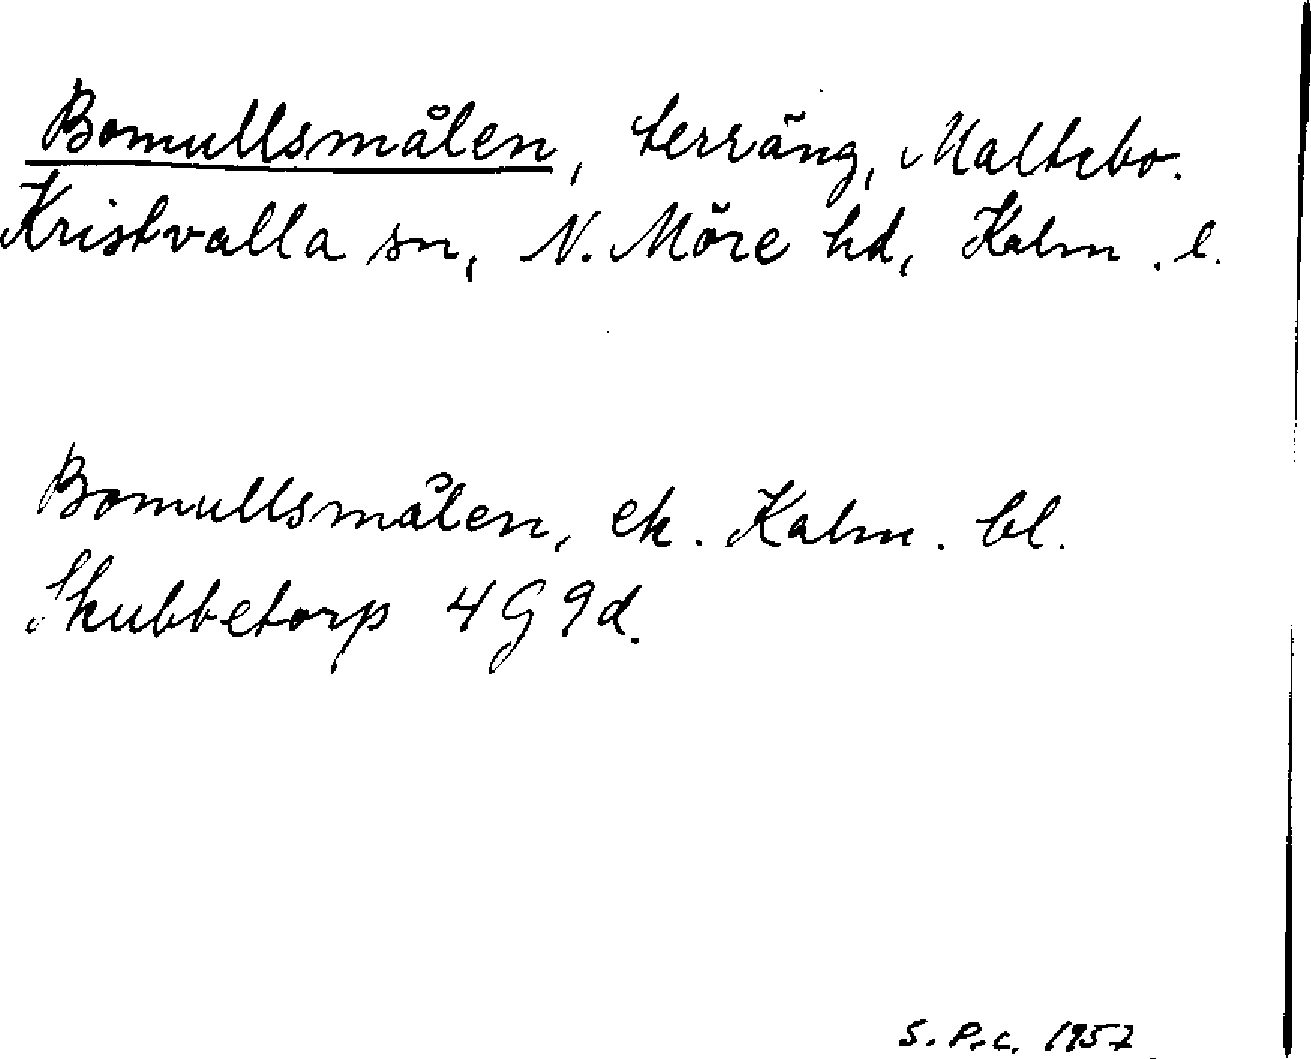 Bomullsmålen, terräng, Maltebo.
Kristvalla sn, N. Möre hd, Kalm. l.
Bomullsmålen, ek. Kalm. bl.
Skubbetorp 4G9d.
S. P.c. 1957